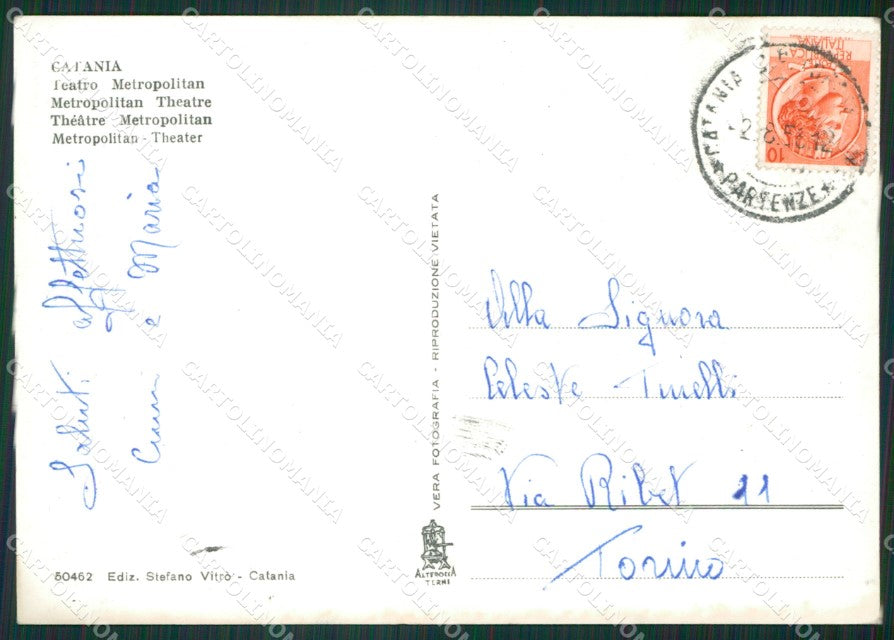 CATANIA
Teatro Metropolitan
Metropolitan Theatre
Théâtre Metropolitan
Metropolitan - Theater
Saluti affettuosi
e Maria
VERA FOTOGRAFIA - RIPRODUZIONE VIETATA
REPUBBLICA
ITALIANA
10
CATANIA
PARTENZE
Alla Signora
Celeste Tinelli
Via Ribet 11
Torino
ALTEROCCA
TERNI
50462 Ediz. Stefano Vitrò - Catania
CARTOLINOMANIA